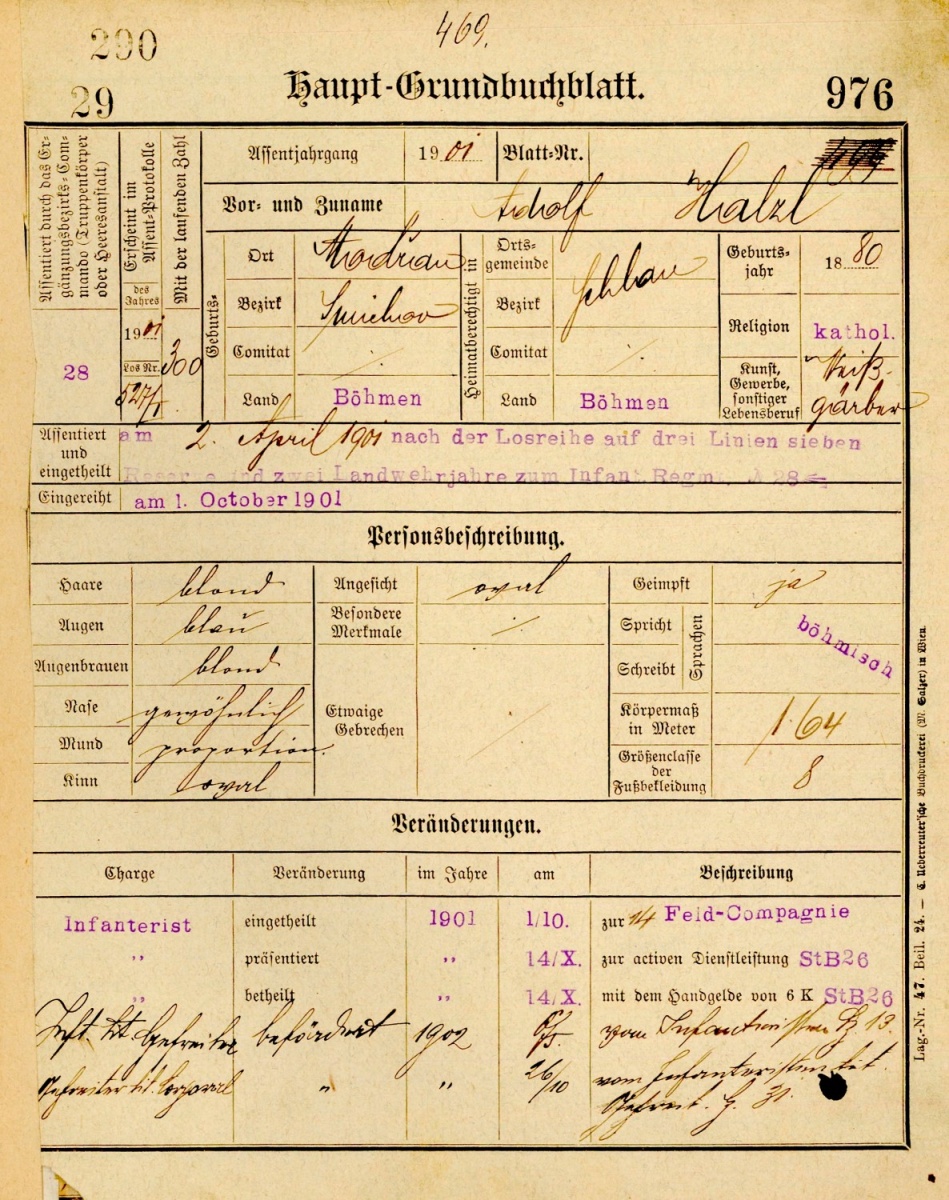 290
469.
29
Haupt-Grundbuchblatt.
976
Assentiert durch das Er-
gänzungsbezirks-Com-
mando (Truppenkörper
oder Heeresanstalt)
28
Erscheint im
Assent-Protokolle
des
Jahres
1901
Los Nr.
Mit der laufenden Zahl
300
Assentjahrgang 1901 Blatt-Nr.
Vor- und Zuname Adolf Halzl
Geburts-
Ort Modřan
Bezirk Smichov
Comitat ·/·
Land Böhmen
Heimatberechtigt in
Orts-
gemeinde
Bezirk
Comitat ·/·
Land Böhmen
Geburts-
jahr 1880
Religion kathol.
Kunst,
Gewerbe,
sonstiger
Lebensberuf
Weiß-
gärber
Assentiert
und
eingetheilt
am 2. April 1901 nach der Losreihe auf drei Linien sieben
Reserve und zwei Landwehrjahre zum Infant. Regm. 28
Eingereiht am 1. October 1901
Personsbeschreibung.
Haare blond
Augen blau
Augenbrauen blond
Nase gewöhnlich
Mund proportion.
Kinn oval
Angesicht oval
Besondere
Merkmale ·/·
Etwaige
Gebrechen ·/·
Geimpft ja
Spricht
Schreibt
Sprachen
böhmisch
Körpermaß
in Meter 1·64
Größenclasse
der
Fußbekleidung 8
Veränderungen.
Charge Veränderung im Jahre am Beschreibung
Infanterist eingetheilt 1901 1/10. zur 14 Feld-Compagnie
" präsentiert " 14/X. zur activen Dienstleistung StB26
" betheilt " 14/X. mit dem Handgelde von 6 K StB26
Inft. tit. Gefreiter befördert 1902 vom Infanteristen 13.
Gefreiter tit. Corporal " " 26/10 vom Infanteristen tit.
Gefreit. 31.
Lag.-Nr. 47. Beil. 24. — C. Ueberreuter'sche Buchdruckerei (M. Salzer) in Wien.